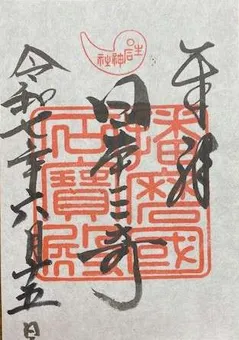 生石神社
奉拝
日本三奇
播磨國
石寶殿
令和七年六月十五日